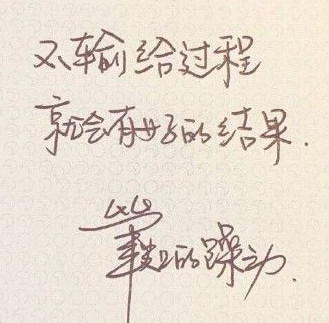 不输给过程
就会有好的结果.
的躁动.